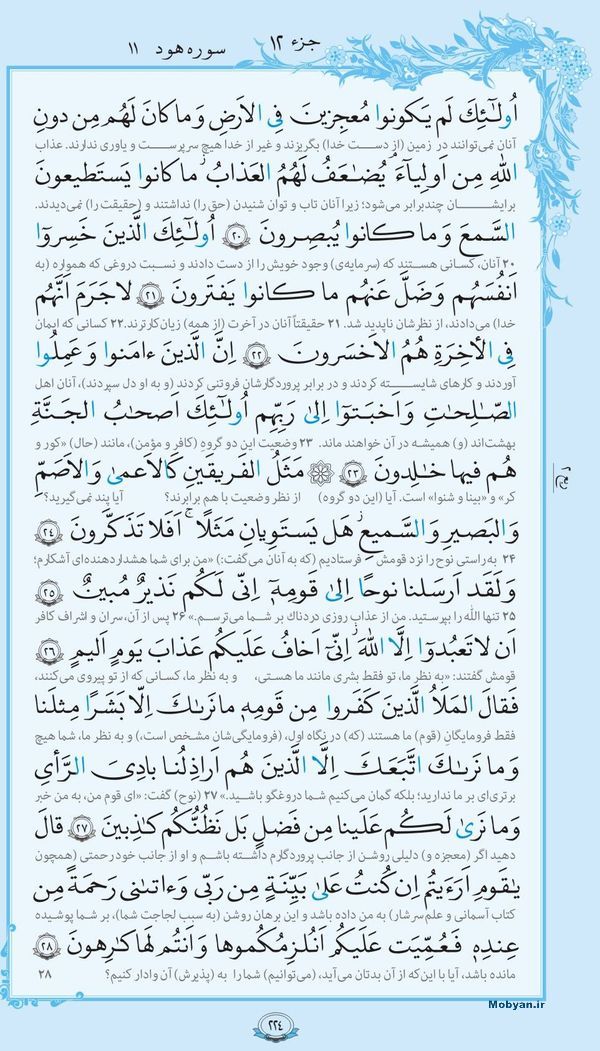 جزء ۱۲ سوره هود ۱۱
اُولٰٓئِكَ لَم يَكونوا مُعجِزينَ فِى الاَرضِ وَما كانَ لَهُم مِن دونِ
آنان نمی‌توانند در زمین (از دست خدا) بگریزند و غیر از خدا هیچ سرپرست و یاوری ندارند. عذاب
اللهِ مِن اَولِياءَ ۘ يُضٰعَفُ لَهُمُ العَذابُ ۚ ما كانوا يَستَطيعونَ
برایشان چندبرابر می‌شود؛ زیرا آنان تاب و توان شنیدن (حق را) نداشتند و (حقیقت را) نمی‌دیدند.
السَّمعَ وَما كانوا يُبصِرونَ ۲۰ اُولٰٓئِكَ الَّذينَ خَسِروٓا
۲۰ آنان، کسانی هستند که (سرمایه‌ی) وجود خویش را از دست دادند و نسبت دروغی که همواره (به
اَنفُسَهُم وَضَلَّ عَنهُم ما كانوا يَفتَرونَ ۲۱ لا جَرَمَ اَنَّهُم
خدا) می‌دادند، از نظرشان ناپدید شد. ۲۱ حقیقتاً آنان در آخرت (از همه) زیان‌کارترند. ۲۲ کسانی که ایمان
فِى الأٰخِرَةِ هُمُ الاَخسَرونَ ۲۲ اِنَّ الَّذينَ ءامَنوا وَعَمِلُوا
آوردند و کارهای شایسته کردند و در برابر پروردگارشان فروتنی کردند (و به او دل سپردند)، آنان اهل
الصّالِحٰتِ وَاَخبَتوٓا اِلىٰ رَبِّهِم اُولٰٓئِكَ اَصحٰبُ الجَنَّةِ
بهشت‌اند (و) همیشه در آن خواهند ماند. ۲۳ وضعیت این دو گروه (کافر و مؤمن)، مانند (حال) «کور و
هُم فيها خٰلِدونَ ۲۳ مَثَلُ الفَريقَينِ كَالاَعمىٰ وَالاَصَمِّ
کر» و «بینا و شنوا» است. آیا (این دو گروه) از نظر وضعیت با هم برابرند؟ آیا پند نمی‌گیرید؟
وَالبَصيرِ وَالسَّميعِ ۚ هَل يَستَوِيانِ مَثَلًا ۚ اَفَلا تَذَكَّرونَ ۲۴
۲۴ به‌راستی نوح را نزد قومش فرستادیم (که به آنان می‌گفت:) «من برای شما هشداردهنده‌ای آشکارم؛
وَلَقَد اَرسَلنا نوحًا اِلىٰ قَومِهٖٓ اِنّى لَكُم نَذيرٌ مُبينٌ ۲۵
۲۵ تنها الله را بپرستید. من از عذاب روزی دردناک بر شما می‌ترسم.» ۲۶ پس از آن، سران و اشراف کافر
اَن لا تَعبُدوٓا اِلَّا اللهَ ۖ اِنّىٓ اَخافُ عَلَيكُم عَذابَ يَومٍ اَليمٍ ۲۶
قومش گفتند: «به نظر ما، تو فقط بشری مانند ما هستی، و به نظر ما، کسانی که از تو پیروی می‌کنند،
فَقالَ المَلَاُ الَّذينَ كَفَروا مِن قَومِهٖ ما نَرىٰكَ اِلّا بَشَرًا مِثلَنا
فقط فرومایگان (قوم) ما هستند (که) در نگاه اول، (فرومایگی‌شان مشخص است،) و به نظر ما، شما هیچ
وَما نَرىٰكَ اتَّبَعَكَ اِلَّا الَّذينَ هُم اَراذِلُنا بادِىَ الرَّأىِ
برتری‌ای بر ما ندارید؛ بلکه گمان می‌کنیم شما دروغگو باشید.» ۲۷ (نوح) گفت: «ای قوم من، به من خبر
وَما نَرىٰ لَكُم عَلَينا مِن فَضلٍ بَل نَظُنُّكُم كٰذِبينَ ۲۷ قالَ
دهید اگر (معجزه و) دلیلی روشن از جانب پروردگارم داشته باشم و او از جانب خود رحمتی (همچون
يٰقَومِ اَرَءَيتُم اِن كُنتُ عَلىٰ بَيِّنَةٍ مِن رَبّى وَءاتٰنى رَحمَةً مِن
کتاب آسمانی و علم سرشار) به من داده باشد و این برهان روشن (به سبب لجاجت شما)، بر شما پوشیده
عِندِهٖ فَعُمِّيَت عَلَيكُم اَنُلزِمُكُموها وَاَنتُم لَها كٰرِهونَ ۲۸
مانده باشد، آیا با این‌که از آن بدتان می‌آید، (می‌توانیم) شما را به (پذیرش) آن وادار کنیم؟ ۲۸
۲۲۴
Mobyan.ir